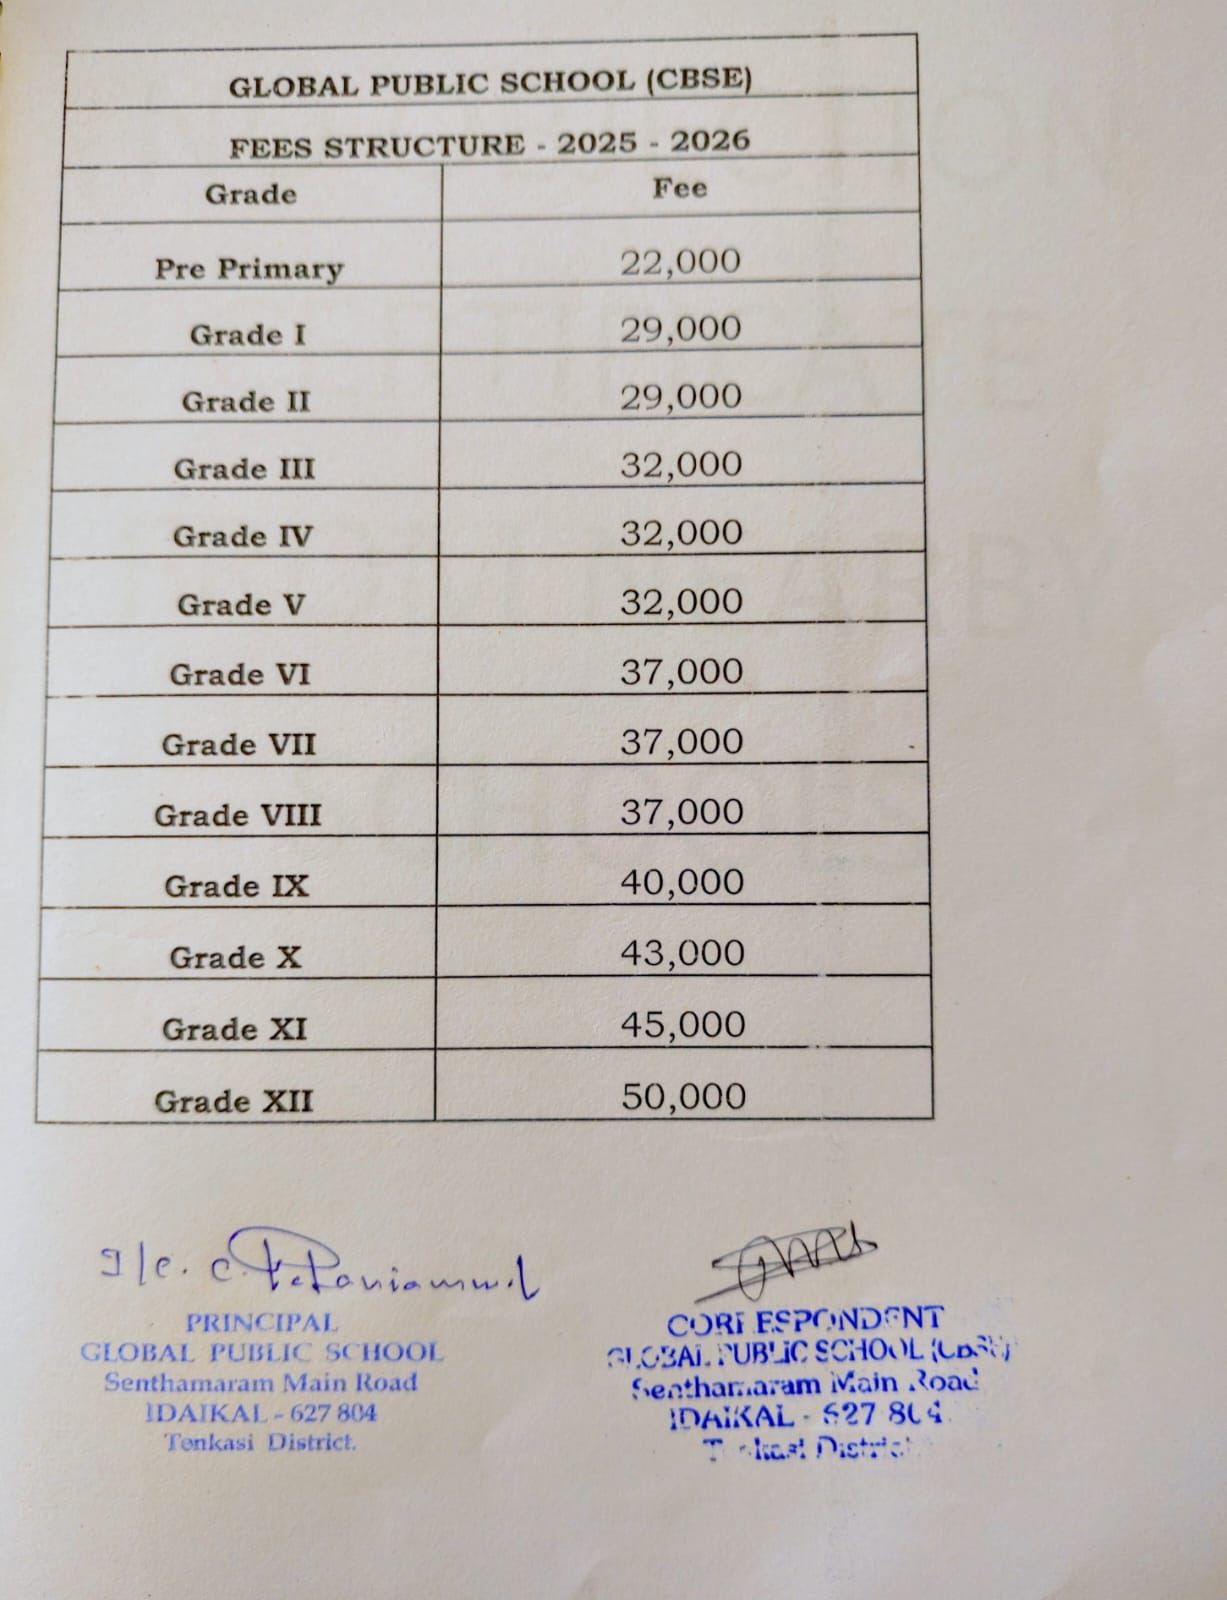 GLOBAL PUBLIC SCHOOL (CBSE)
FEES STRUCTURE - 2025 - 2026
Grade Fee
Pre Primary 22,000
Grade I 29,000
Grade II 29,000
Grade III 32,000
Grade IV 32,000
Grade V 32,000
Grade VI 37,000
Grade VII 37,000
Grade VIII 37,000
Grade IX 40,000
Grade X 43,000
Grade XI 45,000
Grade XII 50,000
PRINCIPAL
GLOBAL PUBLIC SCHOOL
Senthamaram Main Road
IDAIKAL - 627 804
Tenkasi District.
CORRESPONDENT
GLOBAL PUBLIC SCHOOL (CBSE)
Senthamaram Main Road
IDAIKAL - 627 804
Tenkasi District